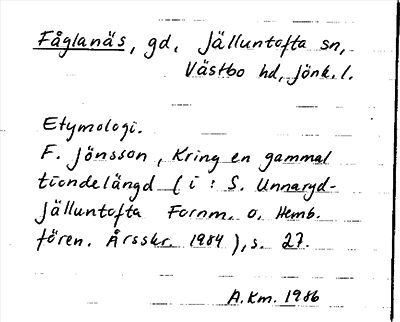 Fåglanäs, gd, Jälluntofta sn,
Västbo hd, Jönk. l.
Etymologi.
F. Jönsson, Kring en gammal
tiondelängd (i: S. Unnaryd-
Jälluntofta Fornm. o. Hemb.
fören. Årsskr. 1984), s. 27.
A.Km. 1986